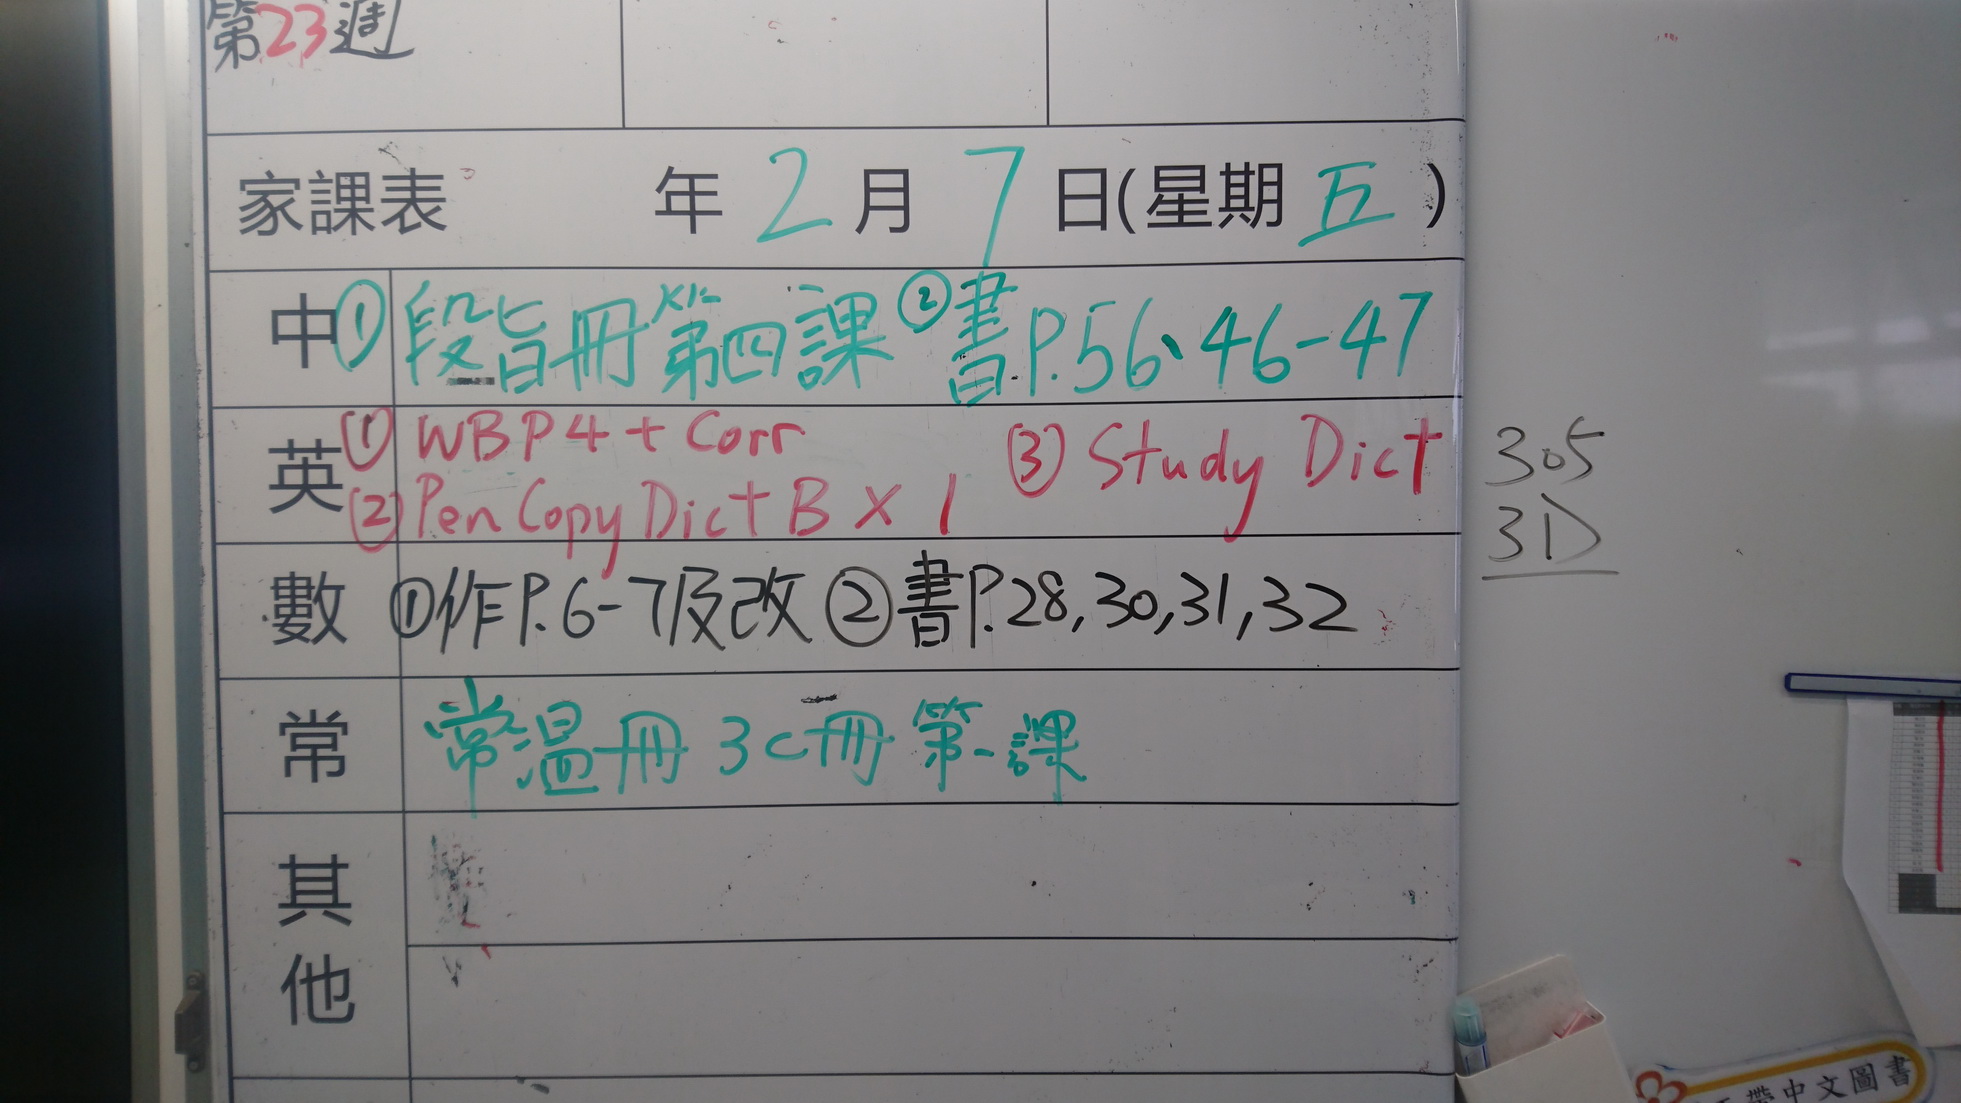 第23週
家課表 年 2 月 7 日(星期 五 )
中 ① 段旨冊第四課 ② 書P.56、46-47
英 ① WB P4 + Corr ③ Study Dict
② Pen Copy Dict B × 1
數 ① 作P.6-7及改 ② 書P.28,30,31,32
常 常溫冊 3C冊 第一課
其他
305
3D
帶中文圖書